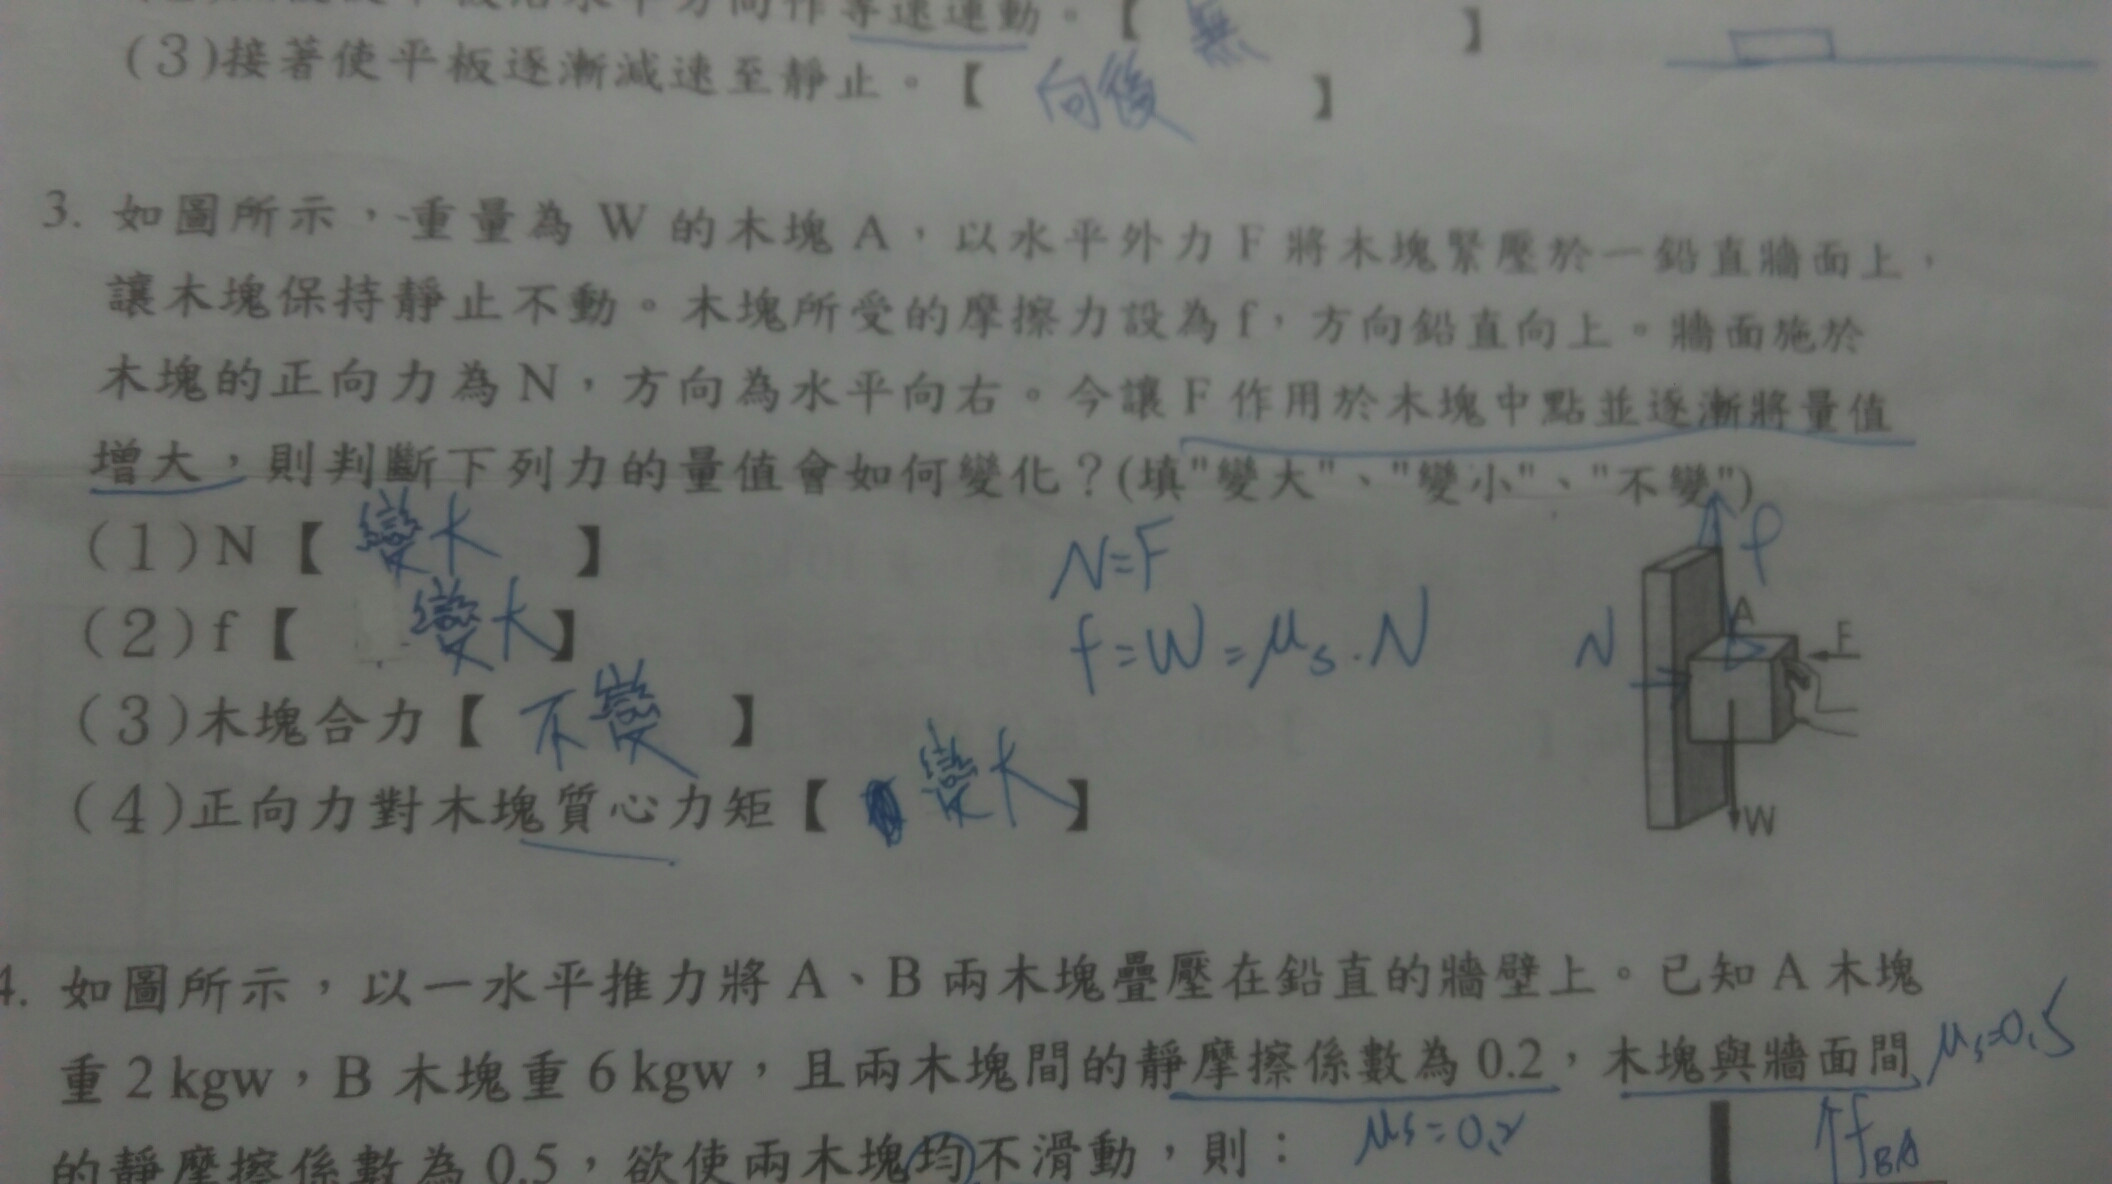 方向作等速運動。【 無 】
(3)接著使平板逐漸減速至靜止。【 向後 】
3. 如圖所示，一重量為 W 的木塊 A，以水平外力 F 將木塊緊壓於一鉛直牆面上，
讓木塊保持靜止不動。木塊所受的摩擦力設為 f，方向鉛直向上。牆面施於
木塊的正向力為 N，方向為水平向右。今讓 F 作用於木塊中點並逐漸將量值
增大，則判斷下列力的量值會如何變化？(填"變大"、"變小"、"不變")
(1)N【 變大 】
(2)f【 變大 】
(3)木塊合力【 不變 】
(4)正向力對木塊質心力矩【 變大 】
N=F
f=W=μs.N
f
A
N
F
W
4. 如圖所示，以一水平推力將 A、B 兩木塊疊壓在鉛直的牆壁上。已知 A 木塊
重 2 kgw，B 木塊重 6 kgw，且兩木塊間的靜摩擦係數為 0.2，木塊與牆面間
μs=0.5
的靜摩擦係數為 0.5，欲使兩木塊均不滑動，則：
μs=0.2
fBA